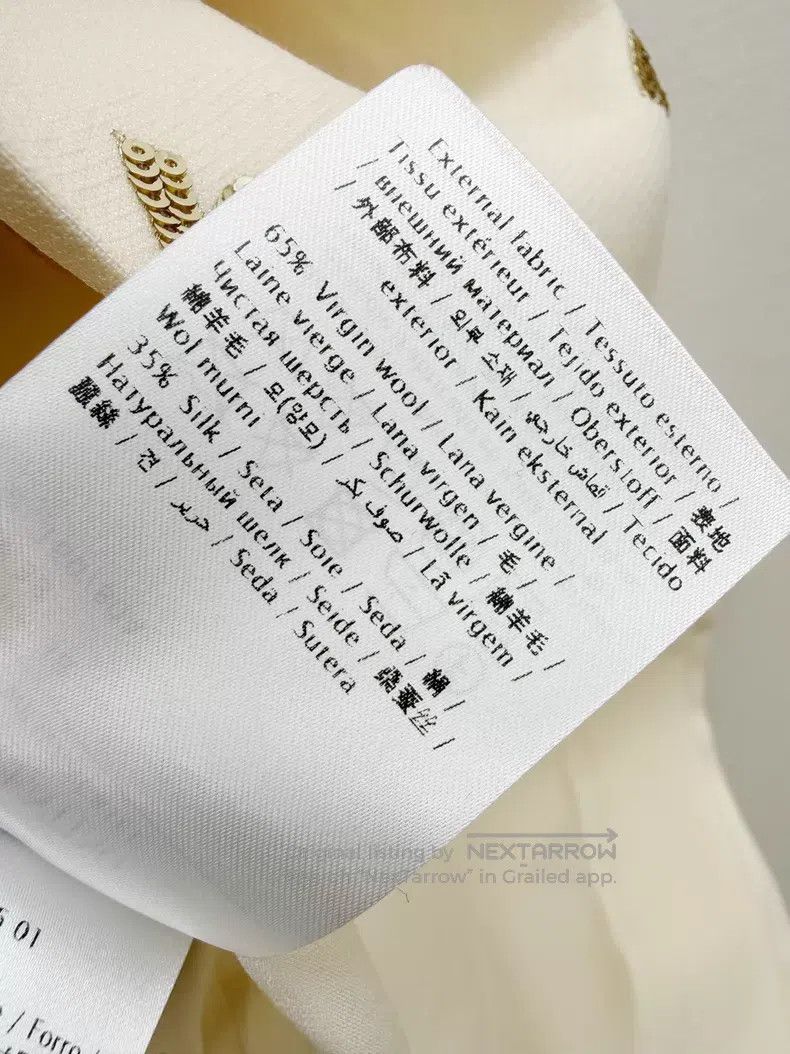 External fabric / Tessuto esterno /
Tissu extérieur / Tejido exterior / 表地
/ внешний материал / Oberstoff / 面料
/ 外部布料 / 외부 소재 / قماش خارجي / Tecido
exterior / Kain eksternal
65% Virgin wool / Lana vergine /
Laine vierge / Lana virgen / 毛 /
Чистая шерсть / Schurwolle / 綿羊毛 /
綿羊毛 / 모(양모) / صوف بكر / Lã virgem /
Wol murni
35% Silk / Seta / Soie / Seda / 絹 /
Натуральный шелк / Seide / 桑蚕丝 /
蠶絲 / 견 / حرير / Seda / Sutera
01
/ Forro
listing by NEXTARROW
"NexTarrow" in Grailed app.